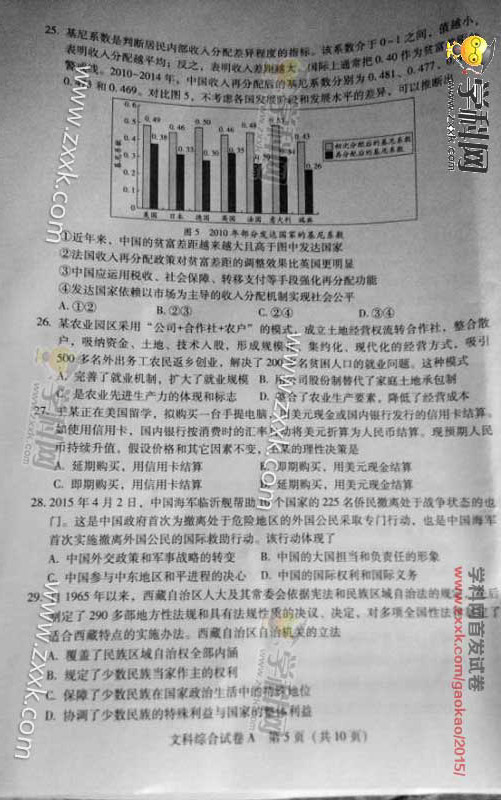 25. 基尼系数是判断居民内部收入分配差异程度的指标。该系数介于0-1之间，值越小，
表明收入分配越平均；反之，表明收入差距越大。国际上通常把0.40作为贫富
警 线。2010-2014年，中国收入再分配后的基尼系数分别为0.481、0.477、
和0.469。对比图5，不考虑各国发展阶段和发展水平的差异，可以推断出
基尼系数
0.6
0.5
0.4
0.3
0.2
0.1
0
0.49 0.38 0.46 0.33 0.50 0.30 0.46 0.35 0.48 0.43 0.26
美国 日本 德国 英国 法国 意大利 瑞典
初次分配后的基尼系数
再分配后的基尼系数
图5 2010年部分发达国家的基尼系数
①近年来，中国的贫富差距越来越大且高于图中发达国家
②法国收入再分配政策对贫富差距的调整效果比英国更明显
③中国应运用税收、社会保障、转移支付等手段强化再分配功能
④发达国家依赖以市场为主导的收入分配机制实现社会公平
A. ①② B. ②③ C. ②④ D. ③④
26. 某农业园区采用“公司+合作社+农户”的模式，成立土地经营权流转合作社，整合散
户，吸纳资金、土地、技术入股，形成规模 、集约化、现代化的经营方式，吸引
500多名外出务工农民返乡创业，解决了200 名贫困人口的就业问题。这种模式
A. 完善了就业机制，扩大了就业规模 B. 用公司股份制替代了家庭土地承包制
C. 是农业先进生产力的体现和标志 D. 整合了农业生产要素，降低了经营成本
27. 王某正在美国留学，拟购买一台手提电脑， 美元现金或国内银行发行的信用卡结算。
如使用信用卡，国内银行按消费时的汇率 将美元折算为人民币结算。现预期人民
币持续升值，假设价格和其它因素不变， 某的理性决策是
A. 延期购买，用信用卡结算 B. 即期购买，用美元现金结算
C. 即期购买，用信用卡结算 D. 延期购买，用美元现金结算
28. 2015年4月2日，中国海军临沂舰帮助 个国家的225名侨民撤离处于战争状态的也
门。这是中国政府首次为撤离处于危险地区的外国公民采取专门行动，也是中国海军
首次实施撤离外国公民的国际救助行动。该行动体现了
A. 中国外交政策和军事战略的转变 B. 中国的大国担当和负责任的形象
C. 中国参与中东地区和平进程的决心 D. 中国的国际权利和国际义务
29. 自1965年以来，西藏自治区人大及其常委会依据宪法和民族区域自治法的规定 后
制定了290多部地方性法规和具有法规性质的决议、决定，对多项全国性法律 了
适合西藏特点的实施办法。西藏自治区自治机关的立法
A. 覆盖了民族区域自治权全部内涵
B. 规定了少数民族当家作主的权利
C. 保障了少数民族在国家政治生活中的特殊地位
D. 协调了少数民族的特殊利益与国家的整体利益
文科综合试卷A 第5页（共10页）
学科网
www.zxxk.com
学科网首发试卷
www.zxxk.com/gaokao/2015/